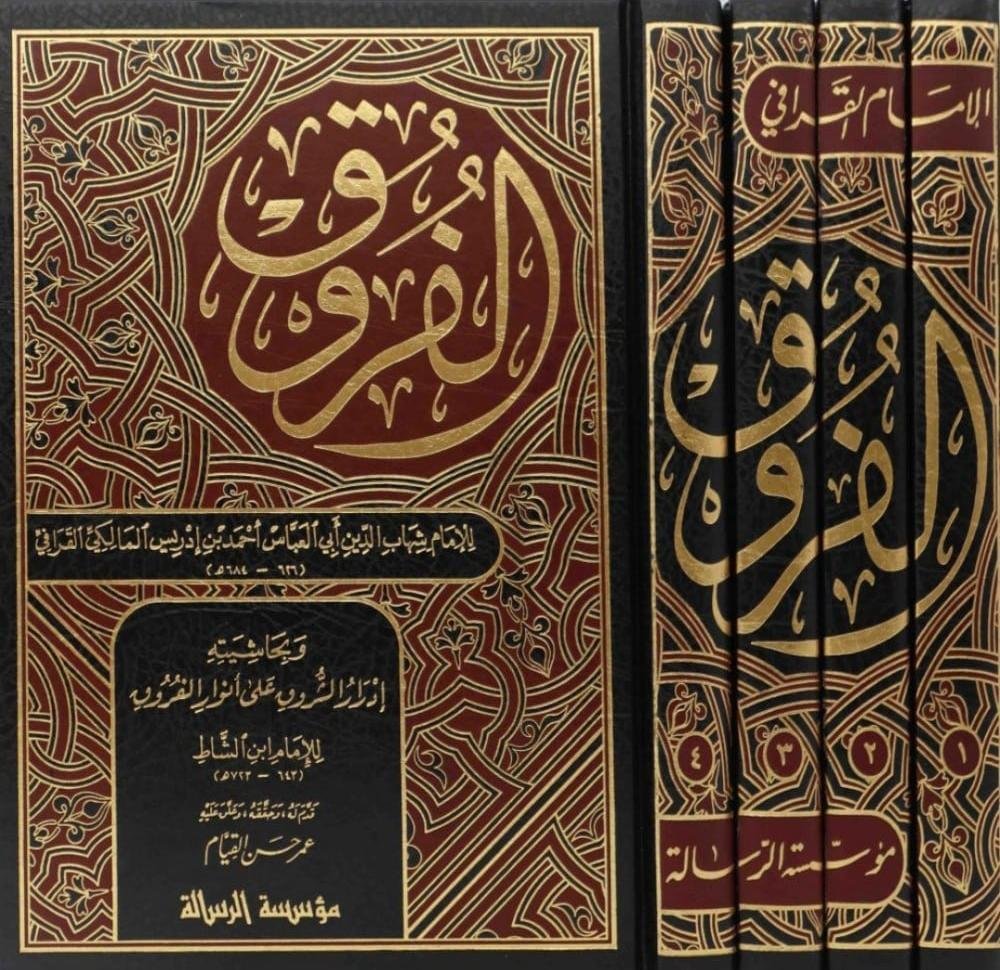 الفروق
للإمام شهاب الدين أبي العباس أحمد بن إدريس المالكي القرافي
(٦٢٦ – ٦٨٤هـ)
وبحاشيته
إدرار الشروق على أنوار الفروق
للإمام ابن الشاط
(٦٤٣ – ٧٢٣هـ)
قدم له، وحققه، وعلق عليه
عمر حسن القيام
مؤسسة الرسالة
الإمام القرافي
الفروق
١ ٢ ٣ ٤
مؤسسة الرسالة